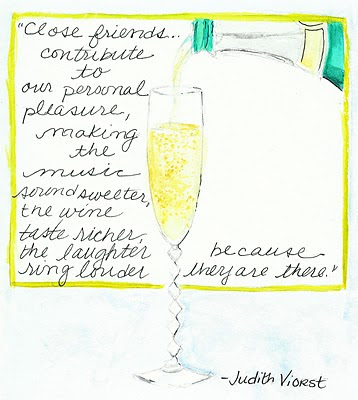 "Close friends...
contribute
to
our personal
pleasure,
making
the
music
sound sweeter,
the wine
taste richer,
the laughter
ring louder
because
they are there."
-Judith Viorst